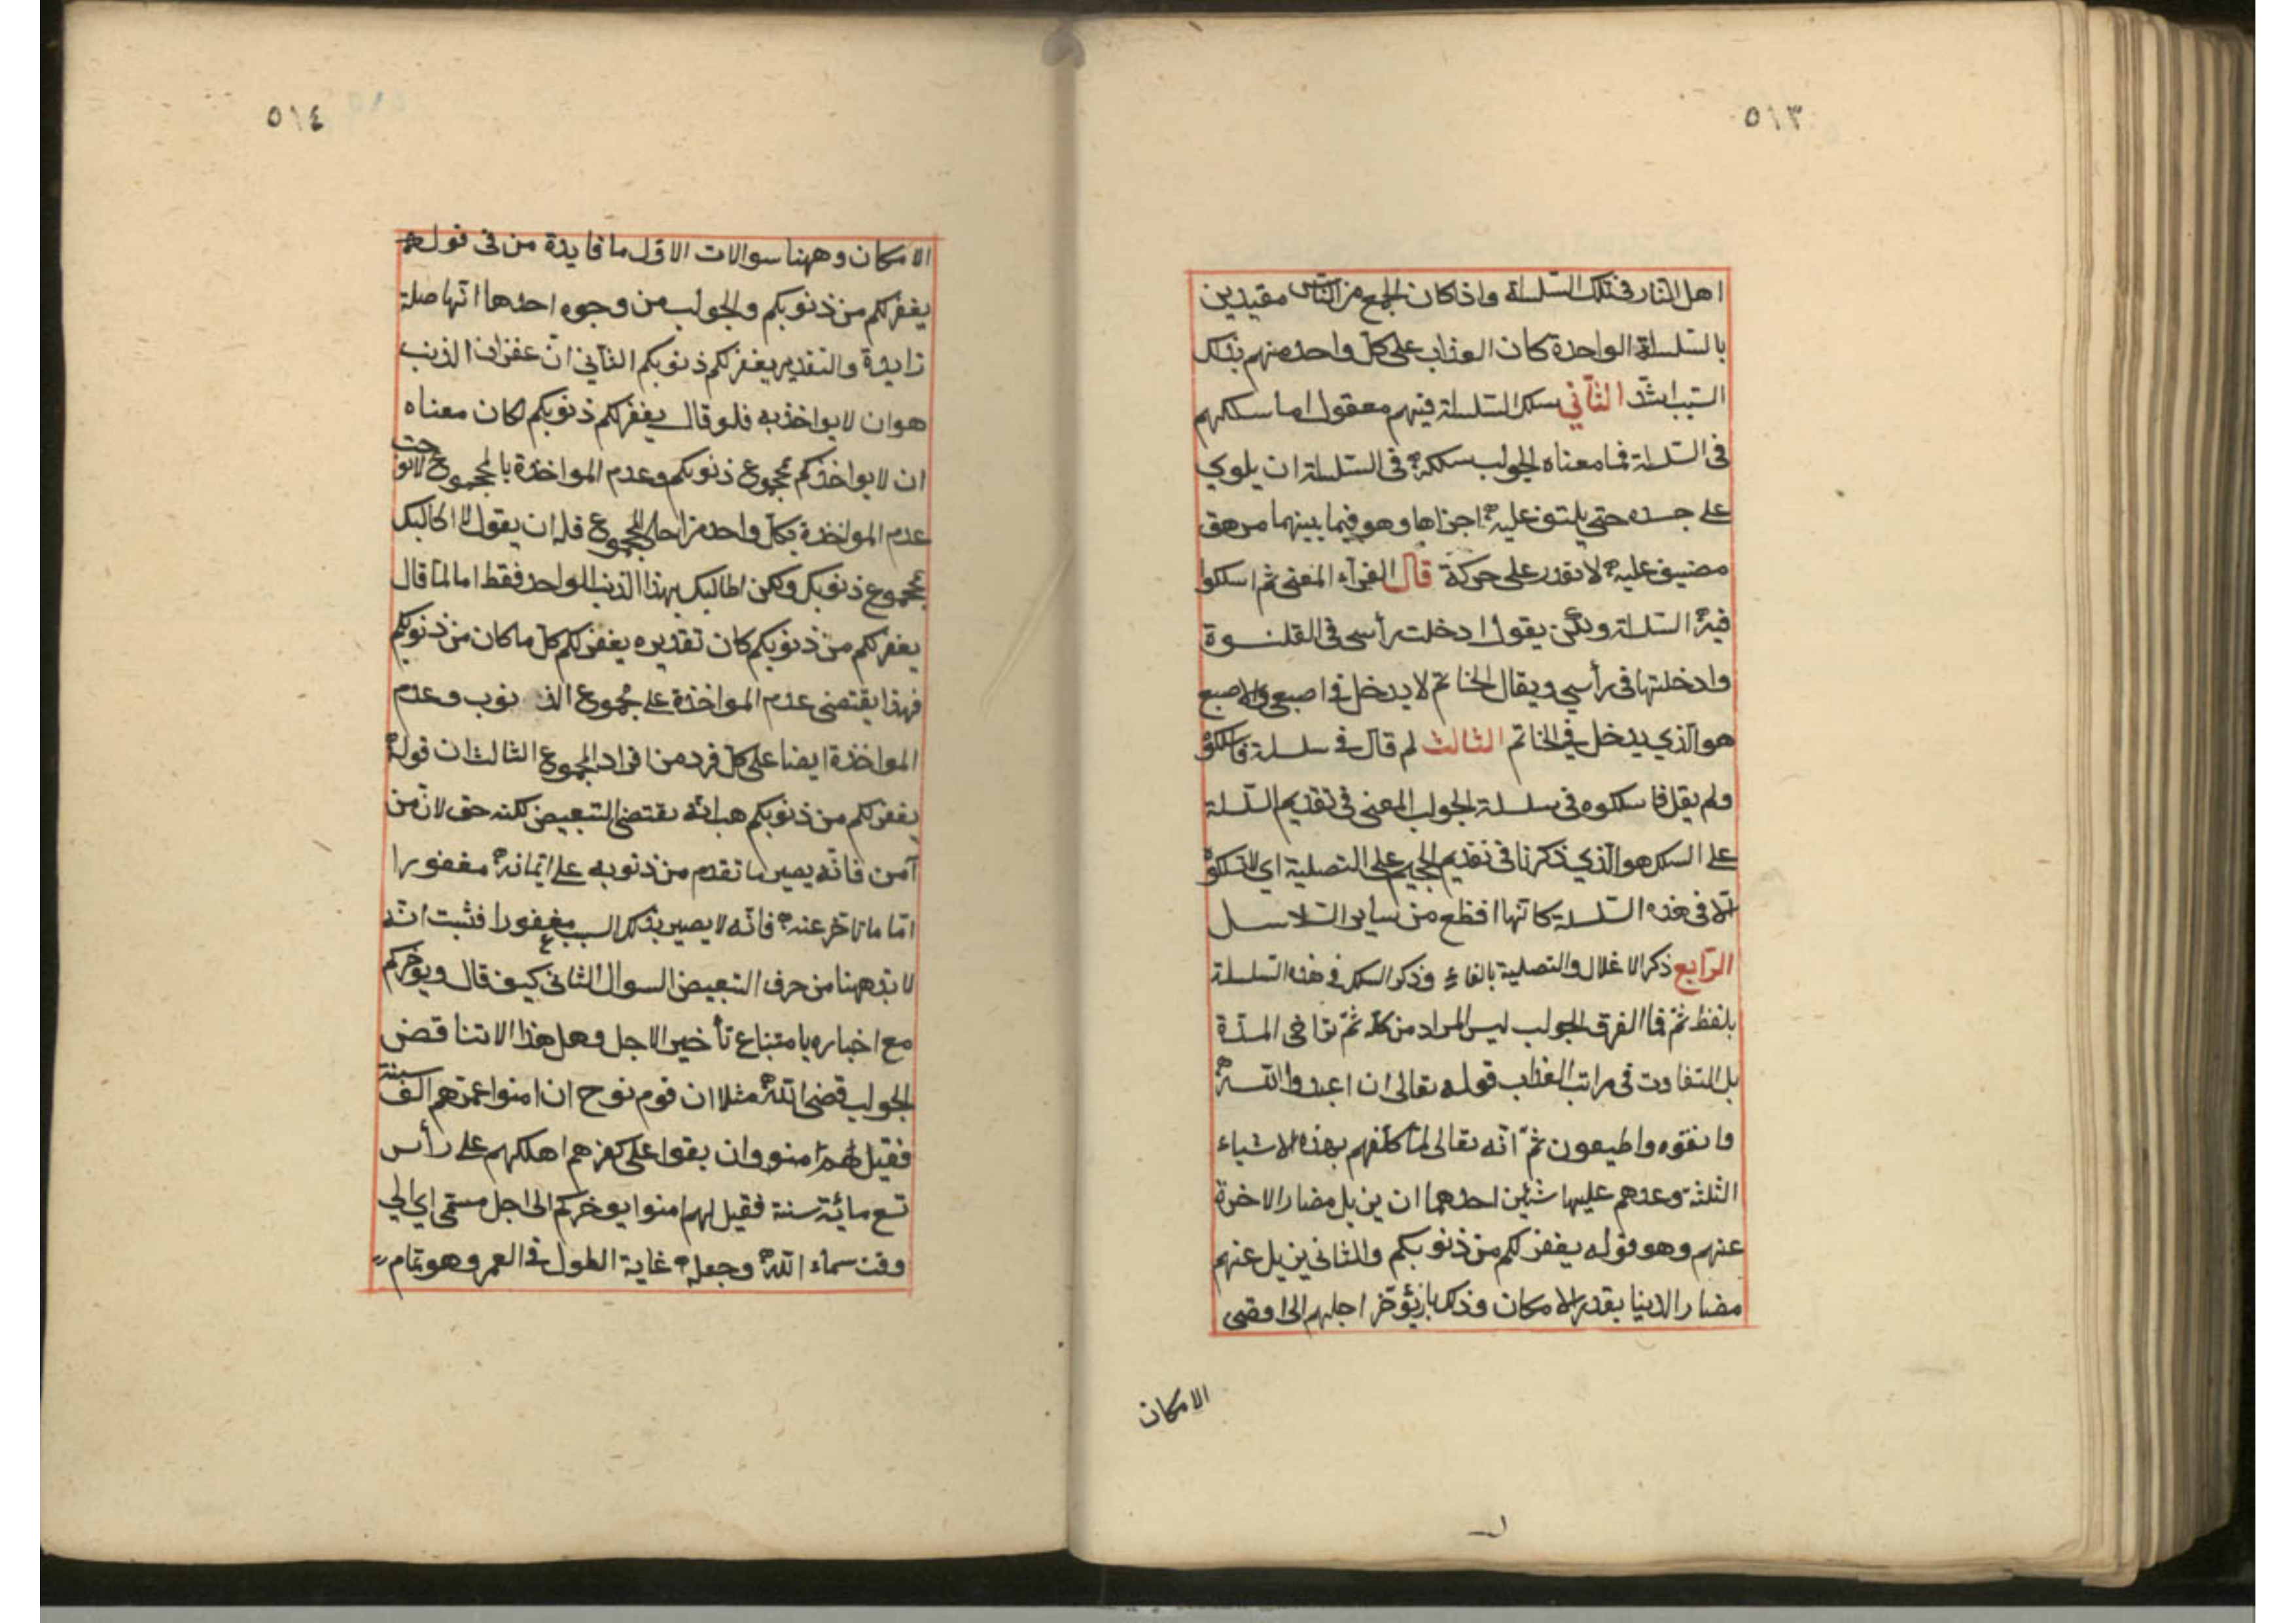 ٥١٣
اهل النار في تلك السلسلة واذا كان الجمع من الناس مقيدين
بالسلسلة الواحدة كان العذاب على كل واحد منهم بذلك
السبب اشد الثاني سلك السلسلة فيهم معقول اما سلكهم
في السلسلة فما معناه الجواب سلكه في السلسلة ان يلوي
على جسده حتى يلتف عليه اجزاها وهو فيما بينهما مرهق
مضيق عليه لا يقدر على حركة قال الفرآء المعنى ثم اسلكوا
فيه السلسلة ولكن يقول ادخلت رأسي في القلنسوة
وادخلتها في رأسي ويقال الخاتم لا يدخل في اصبعي والاصبع
هو الذي يدخل في الخاتم الثالث لم قال في سلسلة فاسلكوه
ولم يقل فاسلكوه في سلسلة الجواب المعنى في تقديم السلسلة
على السلك هو الذي ذكرنا في تقديم الجحيم على التصلية اي لا تسلكوه
الا في هذه السلسلة كانها افظع من ساير السلاسل
الرابع ذكر الاغلال والتصلية بالفاء وذكر السلك في هذه السلسلة
بلفظ ثم فما الفرق الجواب ليس المراد من كلمة ثم تراخى المدة
بل التفاوت في مراتب العذاب قوله تعالى ان اعبدوا الله
واتقوه واطيعون ثم انه تعالى لما كلفهم بهذه الاشياء
الثلثة وعدهم عليها شئين احدهما ان يزيل مضار الاخرة
عنهم وهو قوله يغفر لكم من ذنوبكم والثاني يزيل عنهم
مضار الدنيا بقدر الامكان وذلك بان يؤخر اجلهم الى اقصى
الامكان
٥١٤
الامكان وههنا سوالات الاول ما فايدة من في قوله
يغفر لكم من ذنوبكم والجواب من وجوه احدها انها صلة
زايدة والتقدير يغفر لكم ذنوبكم الثاني ان غفران الذنب
هو ان لا يواخذ به فلو قال يغفر لكم ذنوبكم لكان معناه
ان لا يواخذكم بمجموع ذنوبكم وعدم المواخذة بالمجموع لا توجب
عدم المواخذة بكل واحد من احاد المجموع فله ان يقول لا اطالبك
بمجموع ذنوبك ولكن اطالبك بهذا الذنب الواحد فقط اما لما قال
يغفر لكم من ذنوبكم كان تقديره يغفر لكم كل ما كان من ذنوبكم
فهذا يقتضي عدم المواخذة على مجموع الذنوب وعدم
المواخذة ايضا على كل فرد من افراد المجموع الثالث ان قوله
يغفر لكم من ذنوبكم هب انه يقتضي التبعيض لكنه حق لان من
آمن فانه يصير ما تقدم من ذنوبه على ايمانه مغفورا
اما ما تاخر عنه فانه لا يصير بذلك السبب مغفورا فثبت انه
لا بد ههنا من حرف التبعيض السوال الثاني كيف قال ويوخركم
مع اخباره بامتناع تأخير الاجل وهل هذا الا تناقض
الجواب قضى الله مثلا ان قوم نوح ان امنوا عمرهم الف سنة
فقيل لهم امنوا وان بقوا على كفرهم اهلكهم على رأس
تسع مائة سنة فقيل لهم امنوا يوخركم الى اجل مسمى اي الى
وقت سماه الله وجعله غاية الطول في العمر وهو تمام